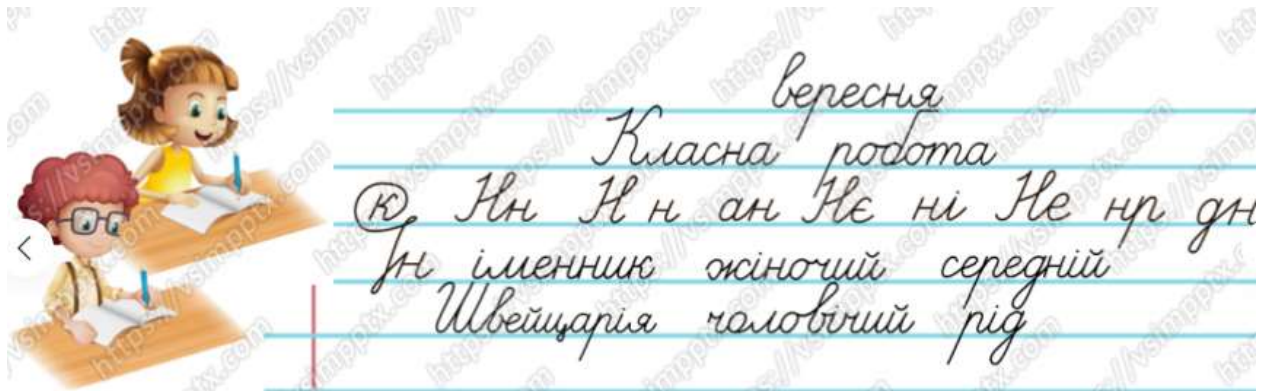 вересня
Класна робота
к Нн Н н ан Нє ні Не нр дн
Ін іменник жіночий середній
Швейцарія чоловічий рід
https://vsimpptx.com